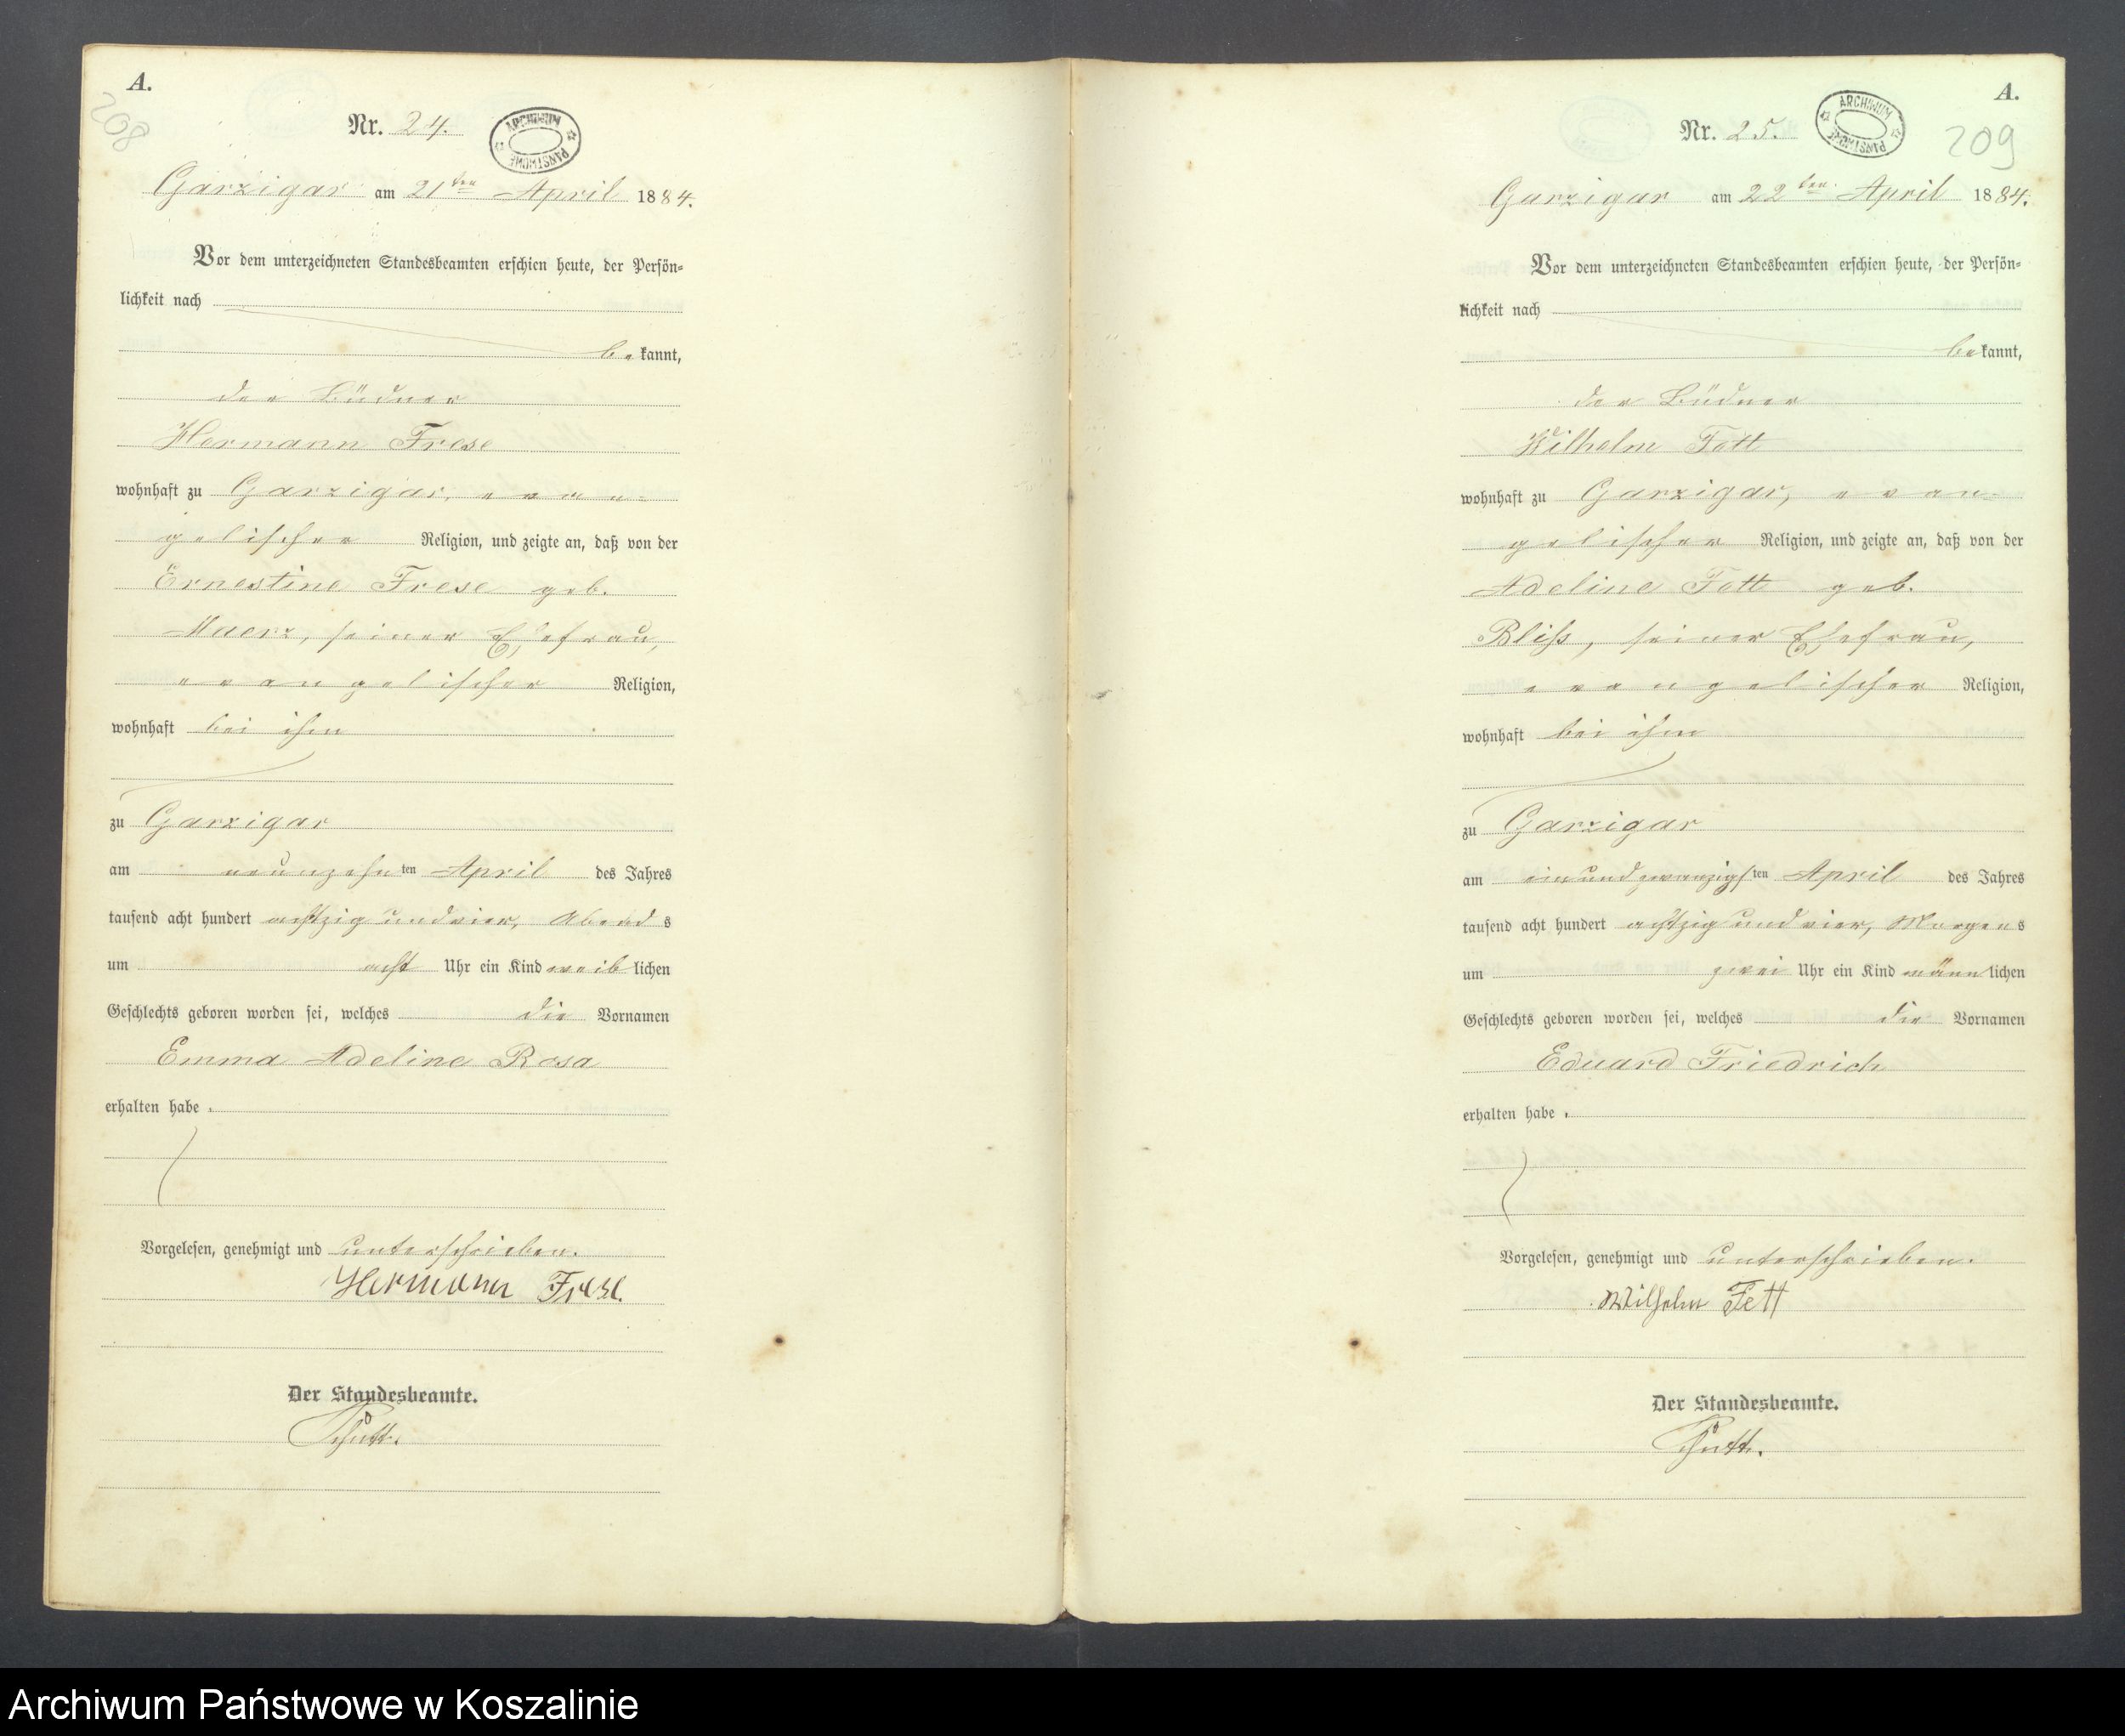 A.
208
Nr. 24.
ARCHIWUM PAŃSTWOWE
Garzigar am 21ten April 1884.
Vor dem unterzeichneten Standesbeamten erschien heute, der Persön-
lichkeit nach
bekannt,
der Büdner
Hermann Frese
wohnhaft zu Garzigar, evan-
gelischer Religion, und zeigte an, daß von der
Ernestine Frese geb.
Maerz, seiner Ehefrau,
evangelischer Religion,
wohnhaft bei ihm
zu Garzigar
am neunzehnten April des Jahres
tausend acht hundert achtzig und vier, Abends
um acht Uhr ein Kind weiblichen
Geschlechts geboren worden sei, welches die Vornamen
Emma Adeline Rosa
erhalten habe.
Vorgelesen, genehmigt und unterschrieben.
Hermann Frese.
Der Standesbeamte.
A.
209
Nr. 25.
ARCHIWUM PAŃSTWOWE
Garzigar am 22ten April 1884.
Vor dem unterzeichneten Standesbeamten erschien heute, der Persön-
lichkeit nach
bekannt,
der Büdner
Wilhelm Fett
wohnhaft zu Garzigar, evan-
gelischer Religion, und zeigte an, daß von der
Adeline Fett geb.
Bliss, seiner Ehefrau,
evangelischer Religion,
wohnhaft bei ihm
zu Garzigar
am einundzwanzigsten April des Jahres
tausend acht hundert achtzig und vier, Morgens
um zwei Uhr ein Kind männlichen
Geschlechts geboren worden sei, welches die Vornamen
Eduard Friedrich
erhalten habe.
Vorgelesen, genehmigt und unterschrieben.
Wilhelm Fett
Der Standesbeamte.
Archiwum Państwowe w Koszalinie